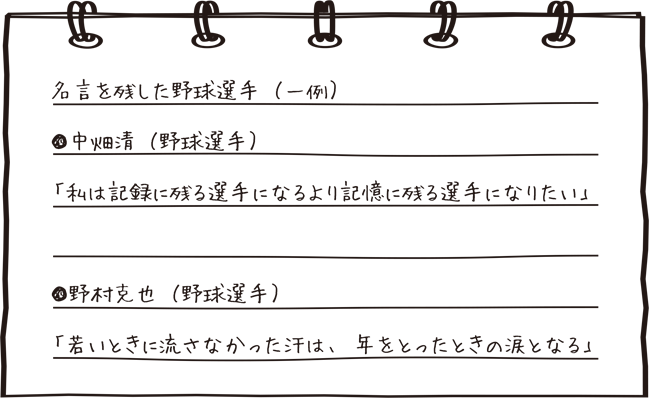 名言を残した野球選手（一例）
●中畑清（野球選手）
「私は記録に残る選手になるより記憶に残る選手になりたい」
●野村克也（野球選手）
「若いときに流さなかった汗は、年をとったときの涙となる」